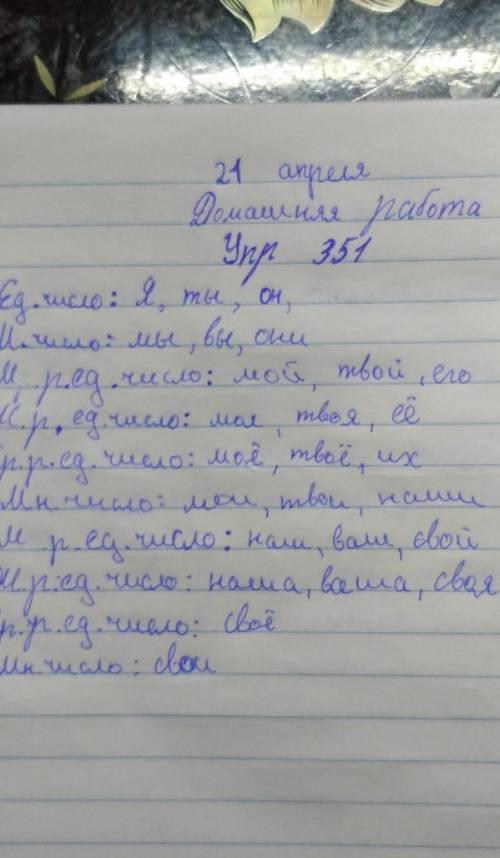 21 апреля
Домашняя работа
Упр 351
Ед.число: Я, ты, он,
И.число: мы, вы, они
М р.ед.число: мой, твой, его
р.ед.число: моя, твоя, её
р.р.ед.число: моё, твоё, их
Мн.число: мои, твои, наши
М р.ед.число: наш, ваш, свой
Ж.р.ед.число: наша, ваша, своя
р.р.ед.число: своё
Мн.число: свои